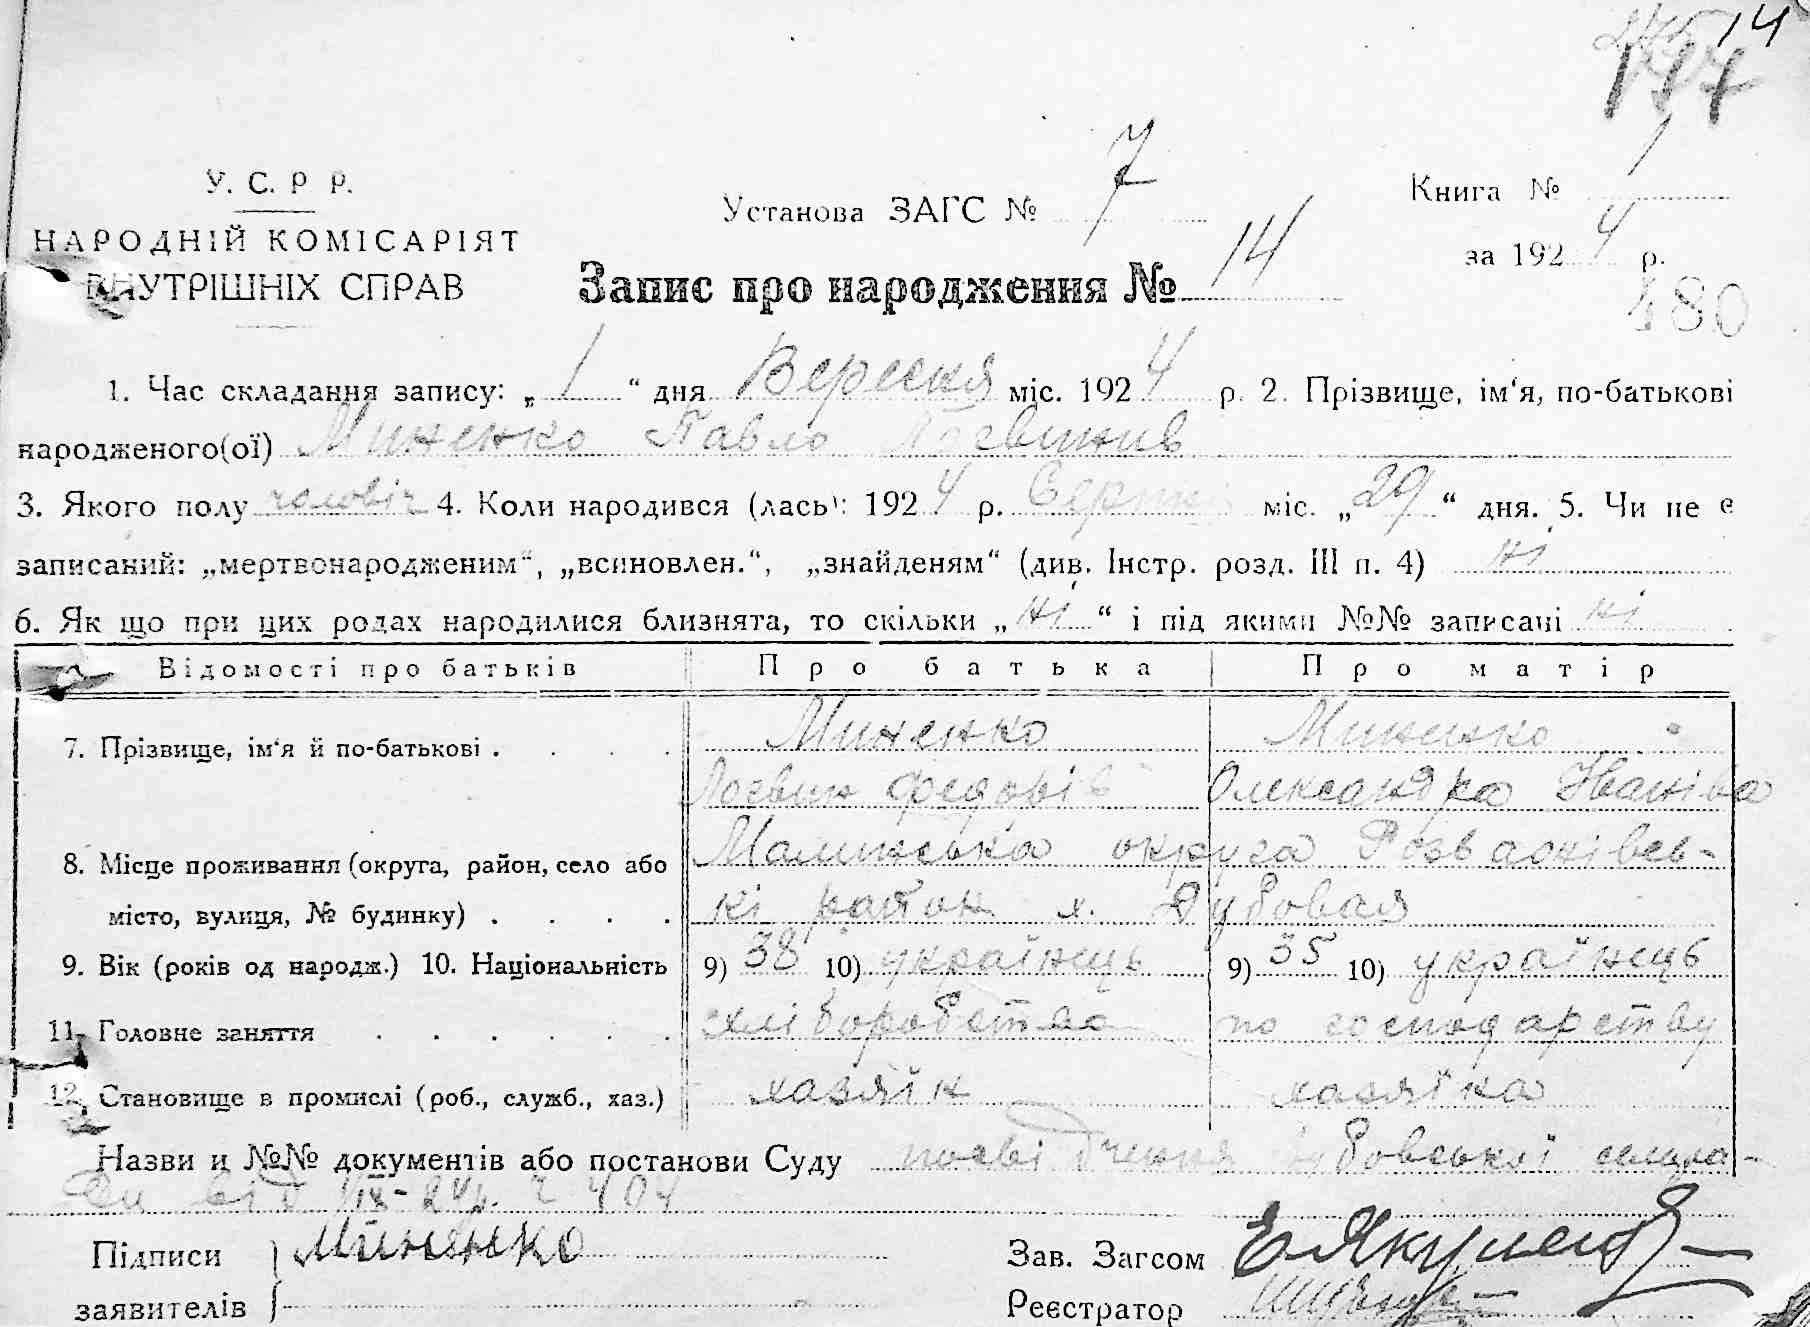 14
У. С. Р Р.
НАРОДНІЙ КОМІСАРІЯТ
ВНУТРІШНІХ СПРАВ
Установа ЗАГС № 7
Книга № 1
за 1924 р.
Запис про народження № 14
480
1. Час складання запису: „ 1 “ дня Вересня міс. 1924 р. 2. Прізвище, ім‘я, по-батькові
народженого(ої) Миненко Павло Логвинів
3. Якого полу чоловіч 4. Коли народився (лась): 1924 р. Серпня міс. „ 29 “ дня. 5. Чи не є
записаний: „мертвонародженим“, „всиновлен.“, „знайденям“ (див. Інстр. розд. III п. 4) ні
6. Як що при цих родах народилися близнята, то скільки „ ні “ і під якими №№ записані ні
Відомості про батьків Про батька Про матір
7. Прізвище, ім‘я й по-батькові . . . . Миненко Миненко
Логвин Федорів Олександра Іванівна
8. Місце проживання (округа, район, село або Малинська округа Розважівсь-
місто, вулиця, № будинку) . . . . кі район х. Дубовая
9. Вік (років од народж.) 10. Національність 9) 38 10) українець 9) 35 10) українець
11. Головне заняття . . . . . . хліборобство по господарству
12. Становище в промислі (роб., служб., хаз.) хазяїн хазяїка
Назви и №№ документів або постанови Суду посвідчення Дубовської сельра-
ди від 1/ІХ-24р. ч 404
Підписи Миненко Зав. Загсом
заявителів Реєстратор